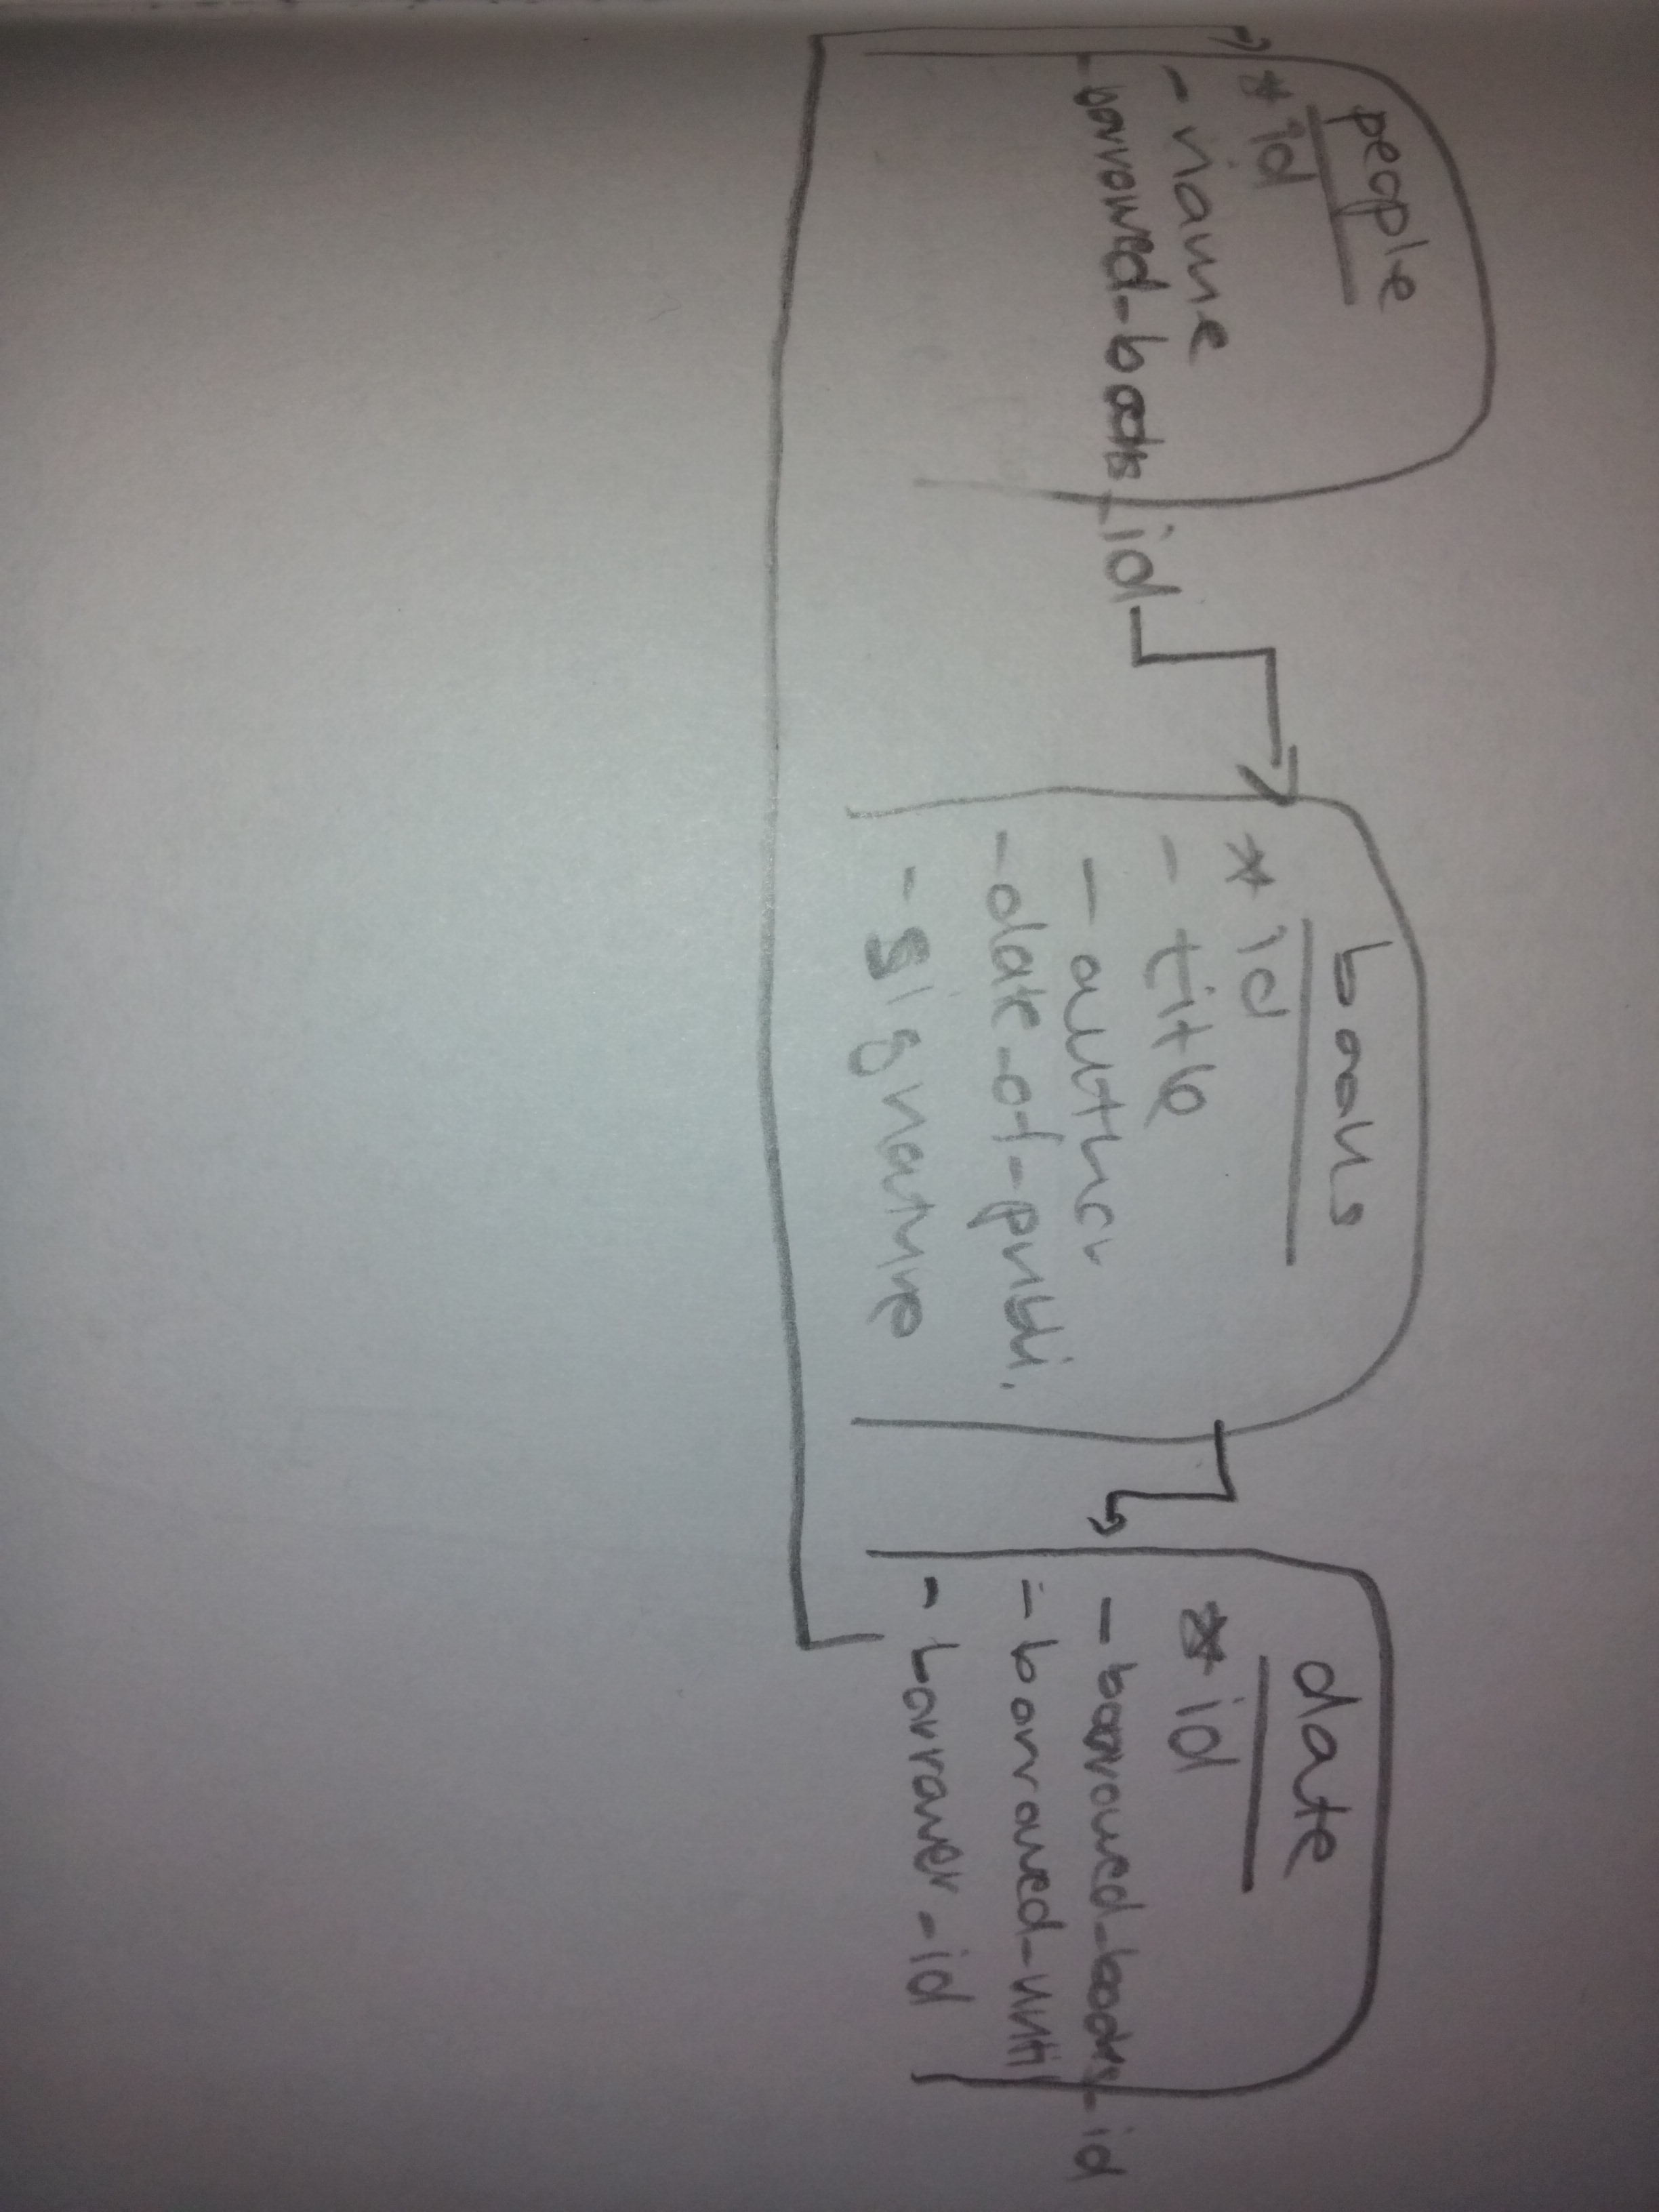 people
* id
- name
- borrowed_books_id
books
* id
- title
- author
- date-of-publi.
- signature
date
* id
- borrowed_books_id
- borrowed-until
- borrower-id